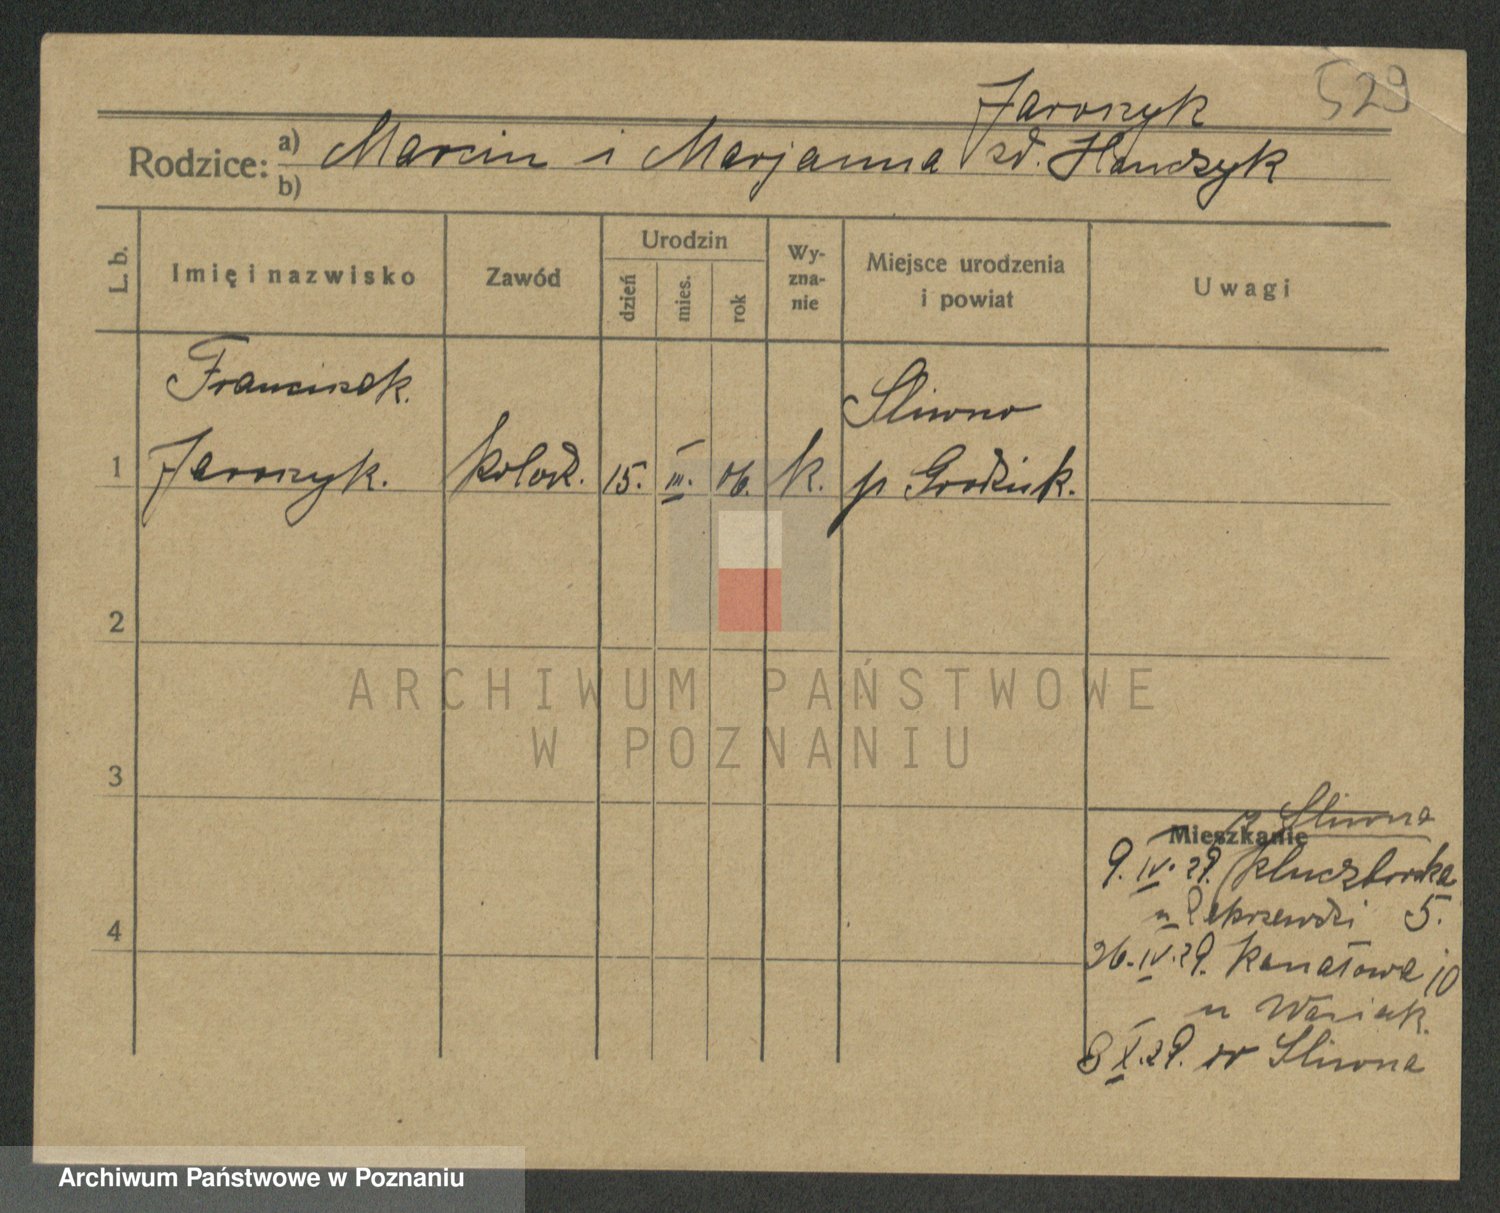 529
Jaroszyk
Rodzice: a) Marcin i Marjanna zd. Handzyk
b)
L. b.
Imię i nazwisko
Zawód
Urodzin
dzień
mies.
rok
Wy-
zna-
nie
Miejsce urodzenia
i powiat
Uwagi
Franciszek
Sliwno
1 Jaroszyk. kołodz. 15. III. 06. k. p Grodzisk.
2
3
4
z Sliwna
Mieszkanie
9. IV. 29. Kluczborska
u 5.
26. IV. 29. Kanałowa 10
u Wasiak.
8 X. 29. do Sliwna
ARCHIWUM PAŃSTWOWE
W POZNANIU
Archiwum Państwowe w Poznaniu